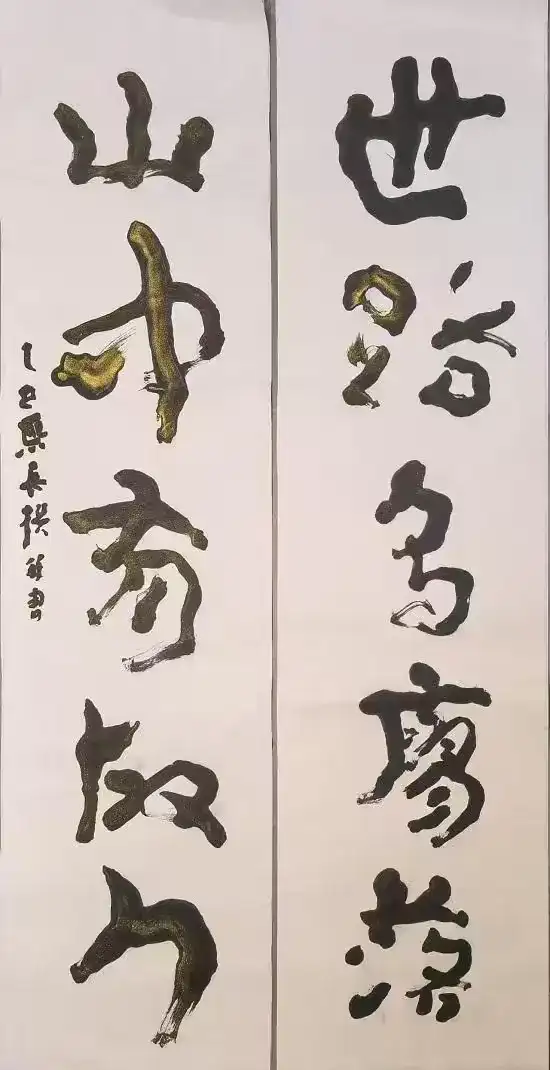 世路廖落
山中有故人
乙巳樂長書